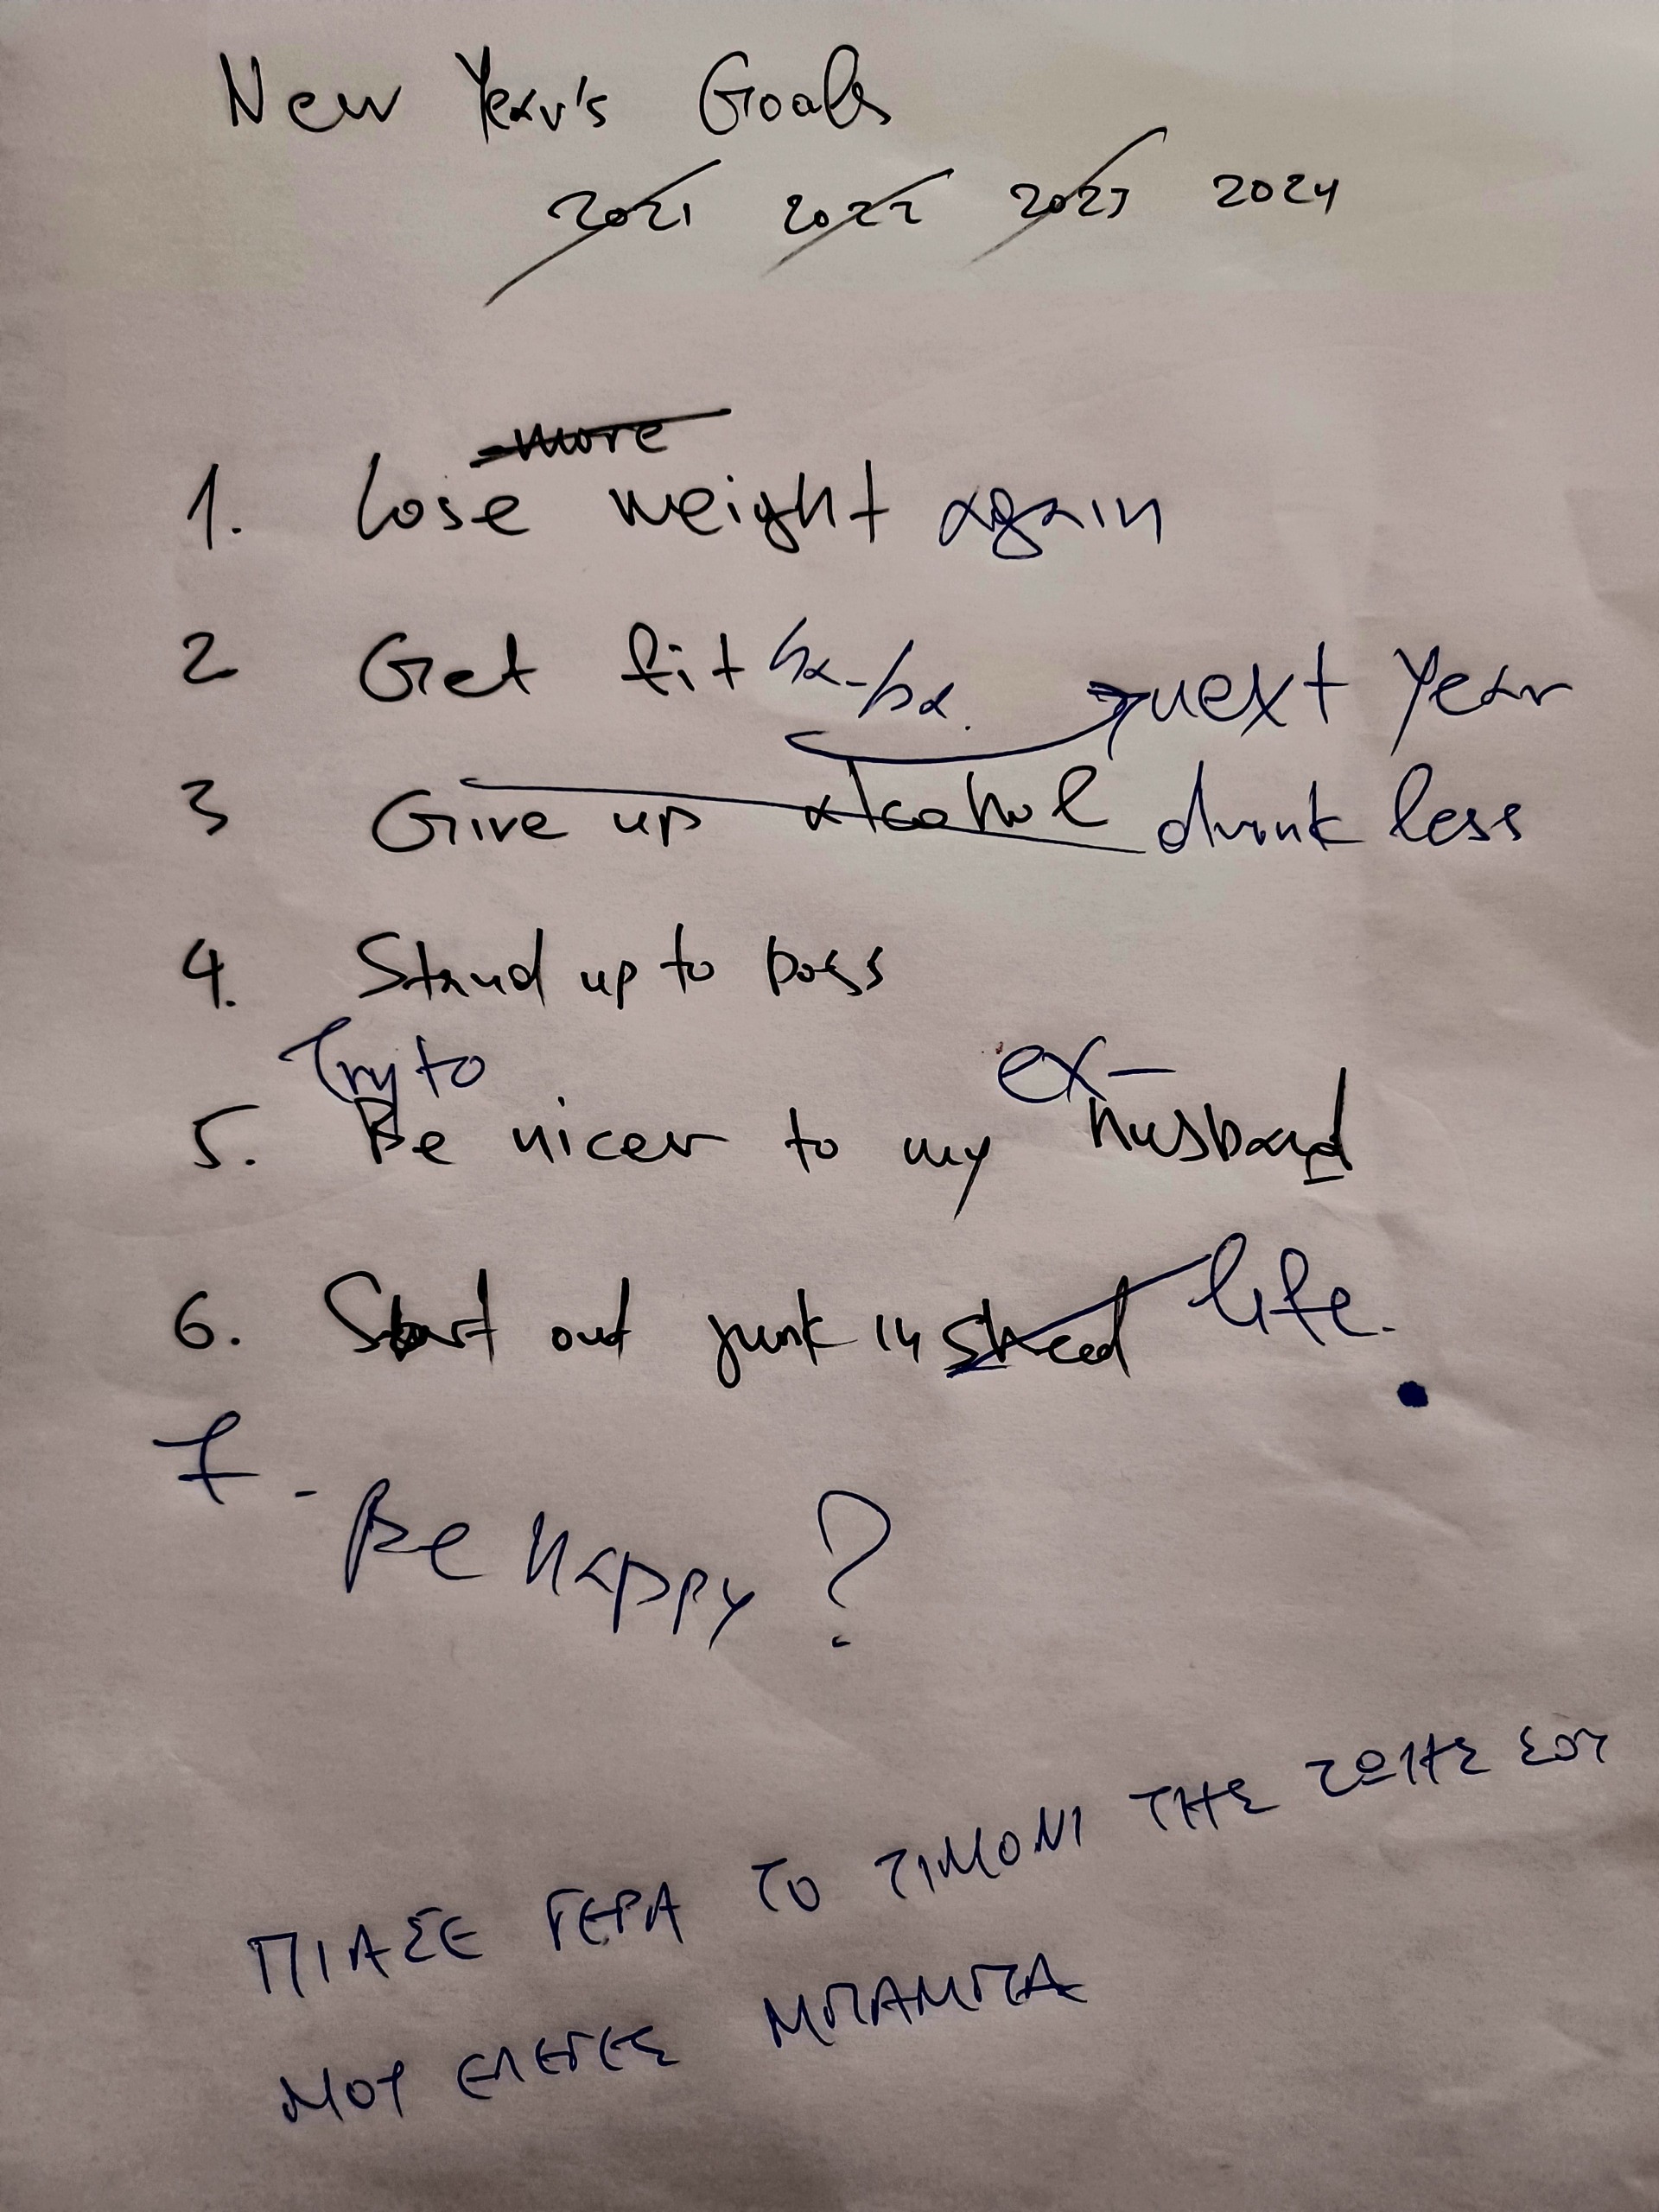 New Year's Goals
2021 2022 2023 2024
more
1. Lose weight again
2 Get fit ha-ha. next year
3 Give up alcohol drink less
4. Stand up to boss
Try to ex-
5. Be nicer to my husband
6. Start out junk in shed life.
7 - Be happy?
ΠΙΑΣΕ ΓΕΡΑ ΤΟ ΤΙΜΟΝΙ ΤΗΣ ΖΩΗΣ ΣΟΥ
ΜΟΥ ΕΛΕΓΕΣ ΜΠΑΜΠΑ